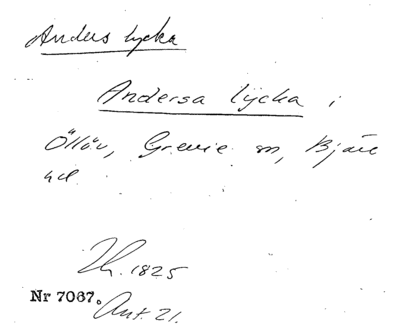 Anders lycka
Andersa lycka i
Öllöv, Grevie sn, Bjäre
hd
Lh. 1825
Nr 7067.
Ant. 21.